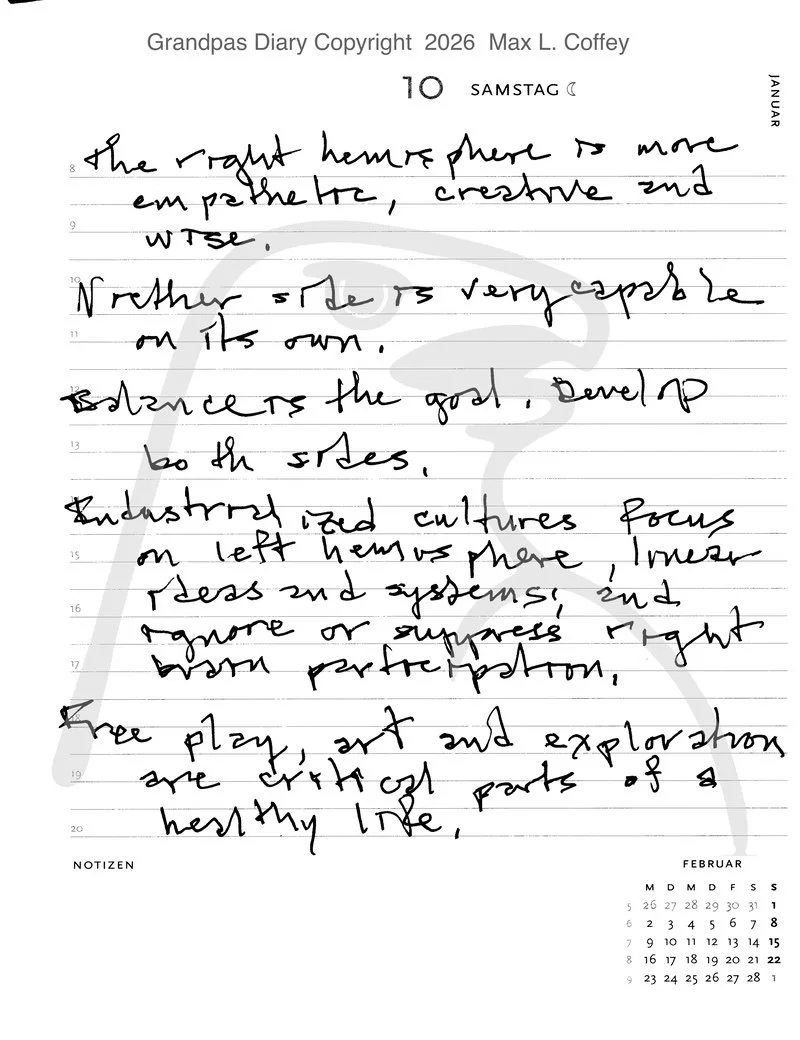 Grandpas Diary Copyright 2026 Max L. Coffey
10 SAMSTAG
JANUAR
8 the right hemisphere is more
empathetic, creative and
9
wise.
10 Neither side is very capable
11 on its own.
12 Balance is the goal. Develop
13 both sides.
Industrialized cultures focus
15 on left hemisphere, linear
ideas and systems; and
16
ignore or suppress right
17 brain participation.
18 Free play, art and exploration
19 are critical parts of a
20 healthy life.
NOTIZEN
FEBRUAR
M D M D F S S
5 26 27 28 29 30 31 1
6 2 3 4 5 6 7 8
7 9 10 11 12 13 14 15
8 16 17 18 19 20 21 22
9 23 24 25 26 27 28 1